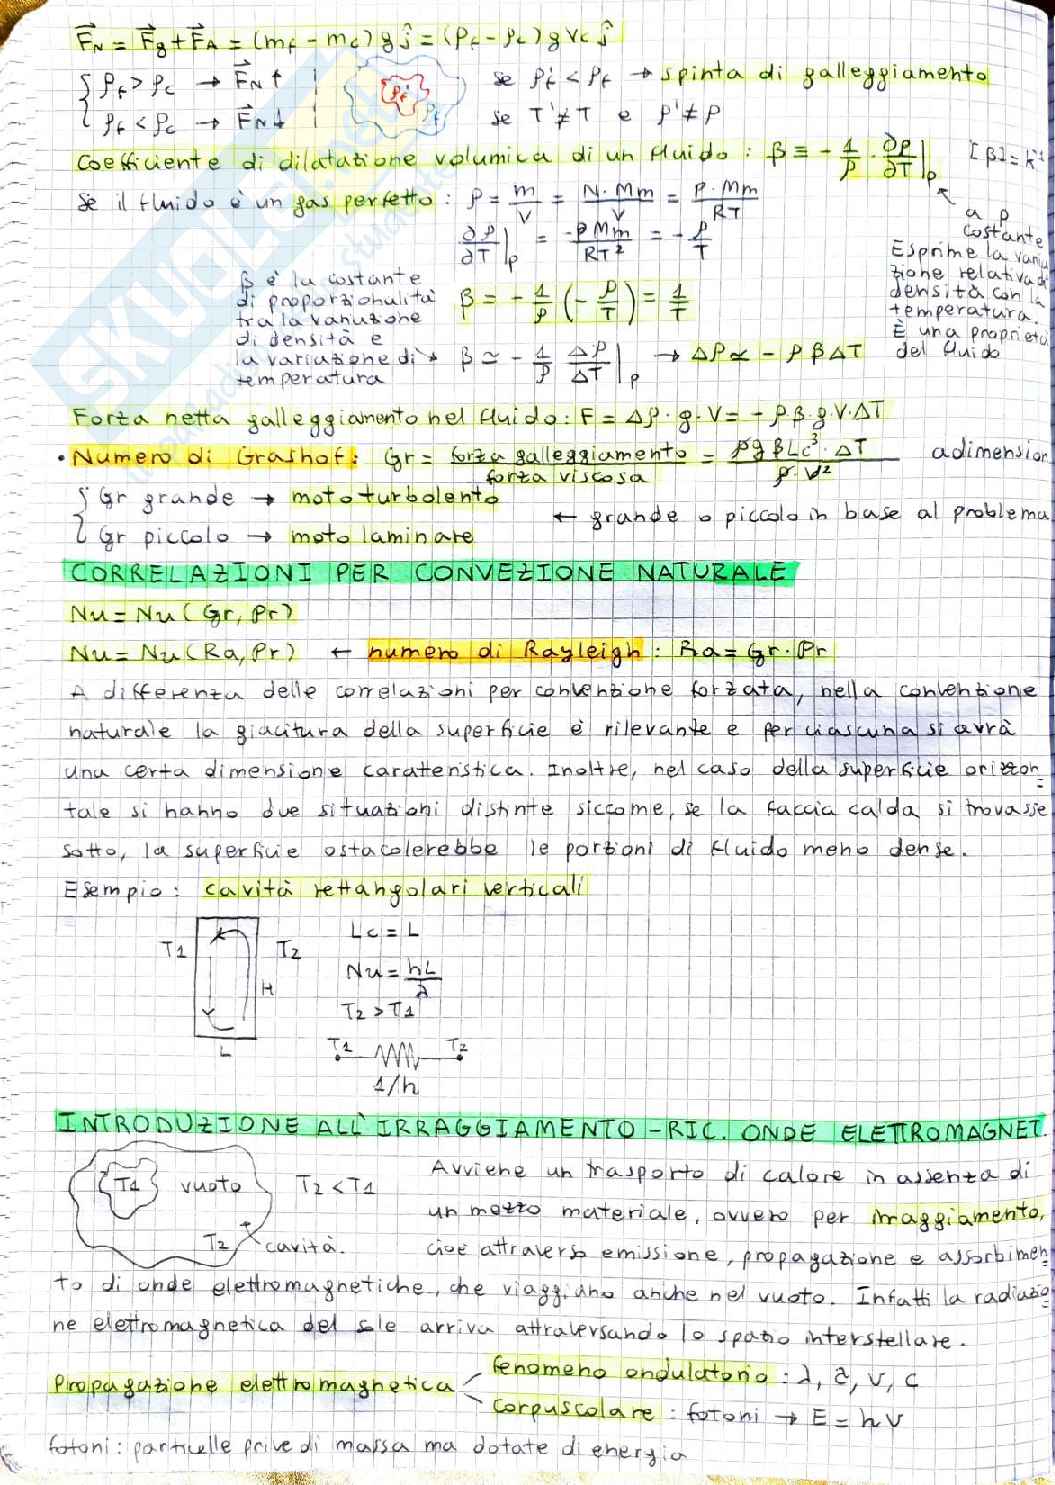 F⃗N = F⃗g + F⃗A = (mf - mc) g ĵ = (ρf - ρc) g Vc ĵ
{ ρf > ρc → F⃗N ↑
{ ρf < ρc → F⃗N ↓
ρ'f
ρf
se ρ'f < ρf → spinta di galleggiamento
se T' ≠ T e ρ' ≠ ρ
Coefficiente di dilatazione volumica di un fluido : β ≡ - 1/ρ · ∂ρ/∂T |p [β] = k⁻¹
a p costante
Se il fluido è un gas perfetto : ρ = m/V = N·Mm/V = p·Mm/RT
∂ρ/∂T |p = -pMm/RT² = - ρ/T
β = - 1/ρ (- ρ/T) = 1/T
β è la costante
di proporzionalità
tra la variazione
di densità e
la variazione di
temperatura
β ≃ - 1/ρ Δρ/ΔT |p → Δρ ∝ - ρβΔT
Esprime la varia
zione relativa di
densità con la
temperatura.
È una proprietà
del fluido
Forza netta galleggiamento nel fluido : F = Δρ·g·V = - ρ·β·g·V·ΔT
• Numero di Grashof : Gr = forza galleggiamento/forza viscosa = ρgβLc³·ΔT/ρ·ν² adimension
{ Gr grande → moto turbolento
{ Gr piccolo → moto laminare
← grande o piccolo in base al problema
CORRELAZIONI PER CONVEZIONE NATURALE
Nu = Nu (Gr, Pr)
Nu = Nu (Ra, Pr) ← numero di Rayleigh : Ra = Gr·Pr
A differenza delle correlazioni per convenzione forzata, nella convenzione
naturale la giacitura della superficie è rilevante e per ciascuna si avrà
una certa dimensione caratteristica. Inoltre, nel caso della superficie orizzon-
tale si hanno due situazioni distinte siccome, se la faccia calda si trovasse
sotto, la superficie ostacolerebbe le porzioni di fluido meno dense.
Esempio : cavità rettangolari verticali
T1 T2
H
L
Lc = L
Nu = hL/λ
T2 > T1
T1 T2
1/h
INTRODUZIONE ALL'IRRAGGIAMENTO - RIC. ONDE ELETTROMAGNET.
T1 vuoto T2 < T1
T2 cavità.
Avviene un trasporto di calore in assenza di
un mezzo materiale, ovvero per irraggiamento,
cioè attraverso emissione, propagazione e assorbimen-
to di onde elettromagnetiche, che viaggiano anche nel vuoto. Infatti la radiazio-
ne elettromagnetica del sole arriva attraversando lo spazio interstellare.
Propagazione elettromagnetica
fenomeno ondulatorio : λ, ν, c
corpuscolare : fotoni → E = hν
fotoni : particelle prive di massa ma dotate di energia